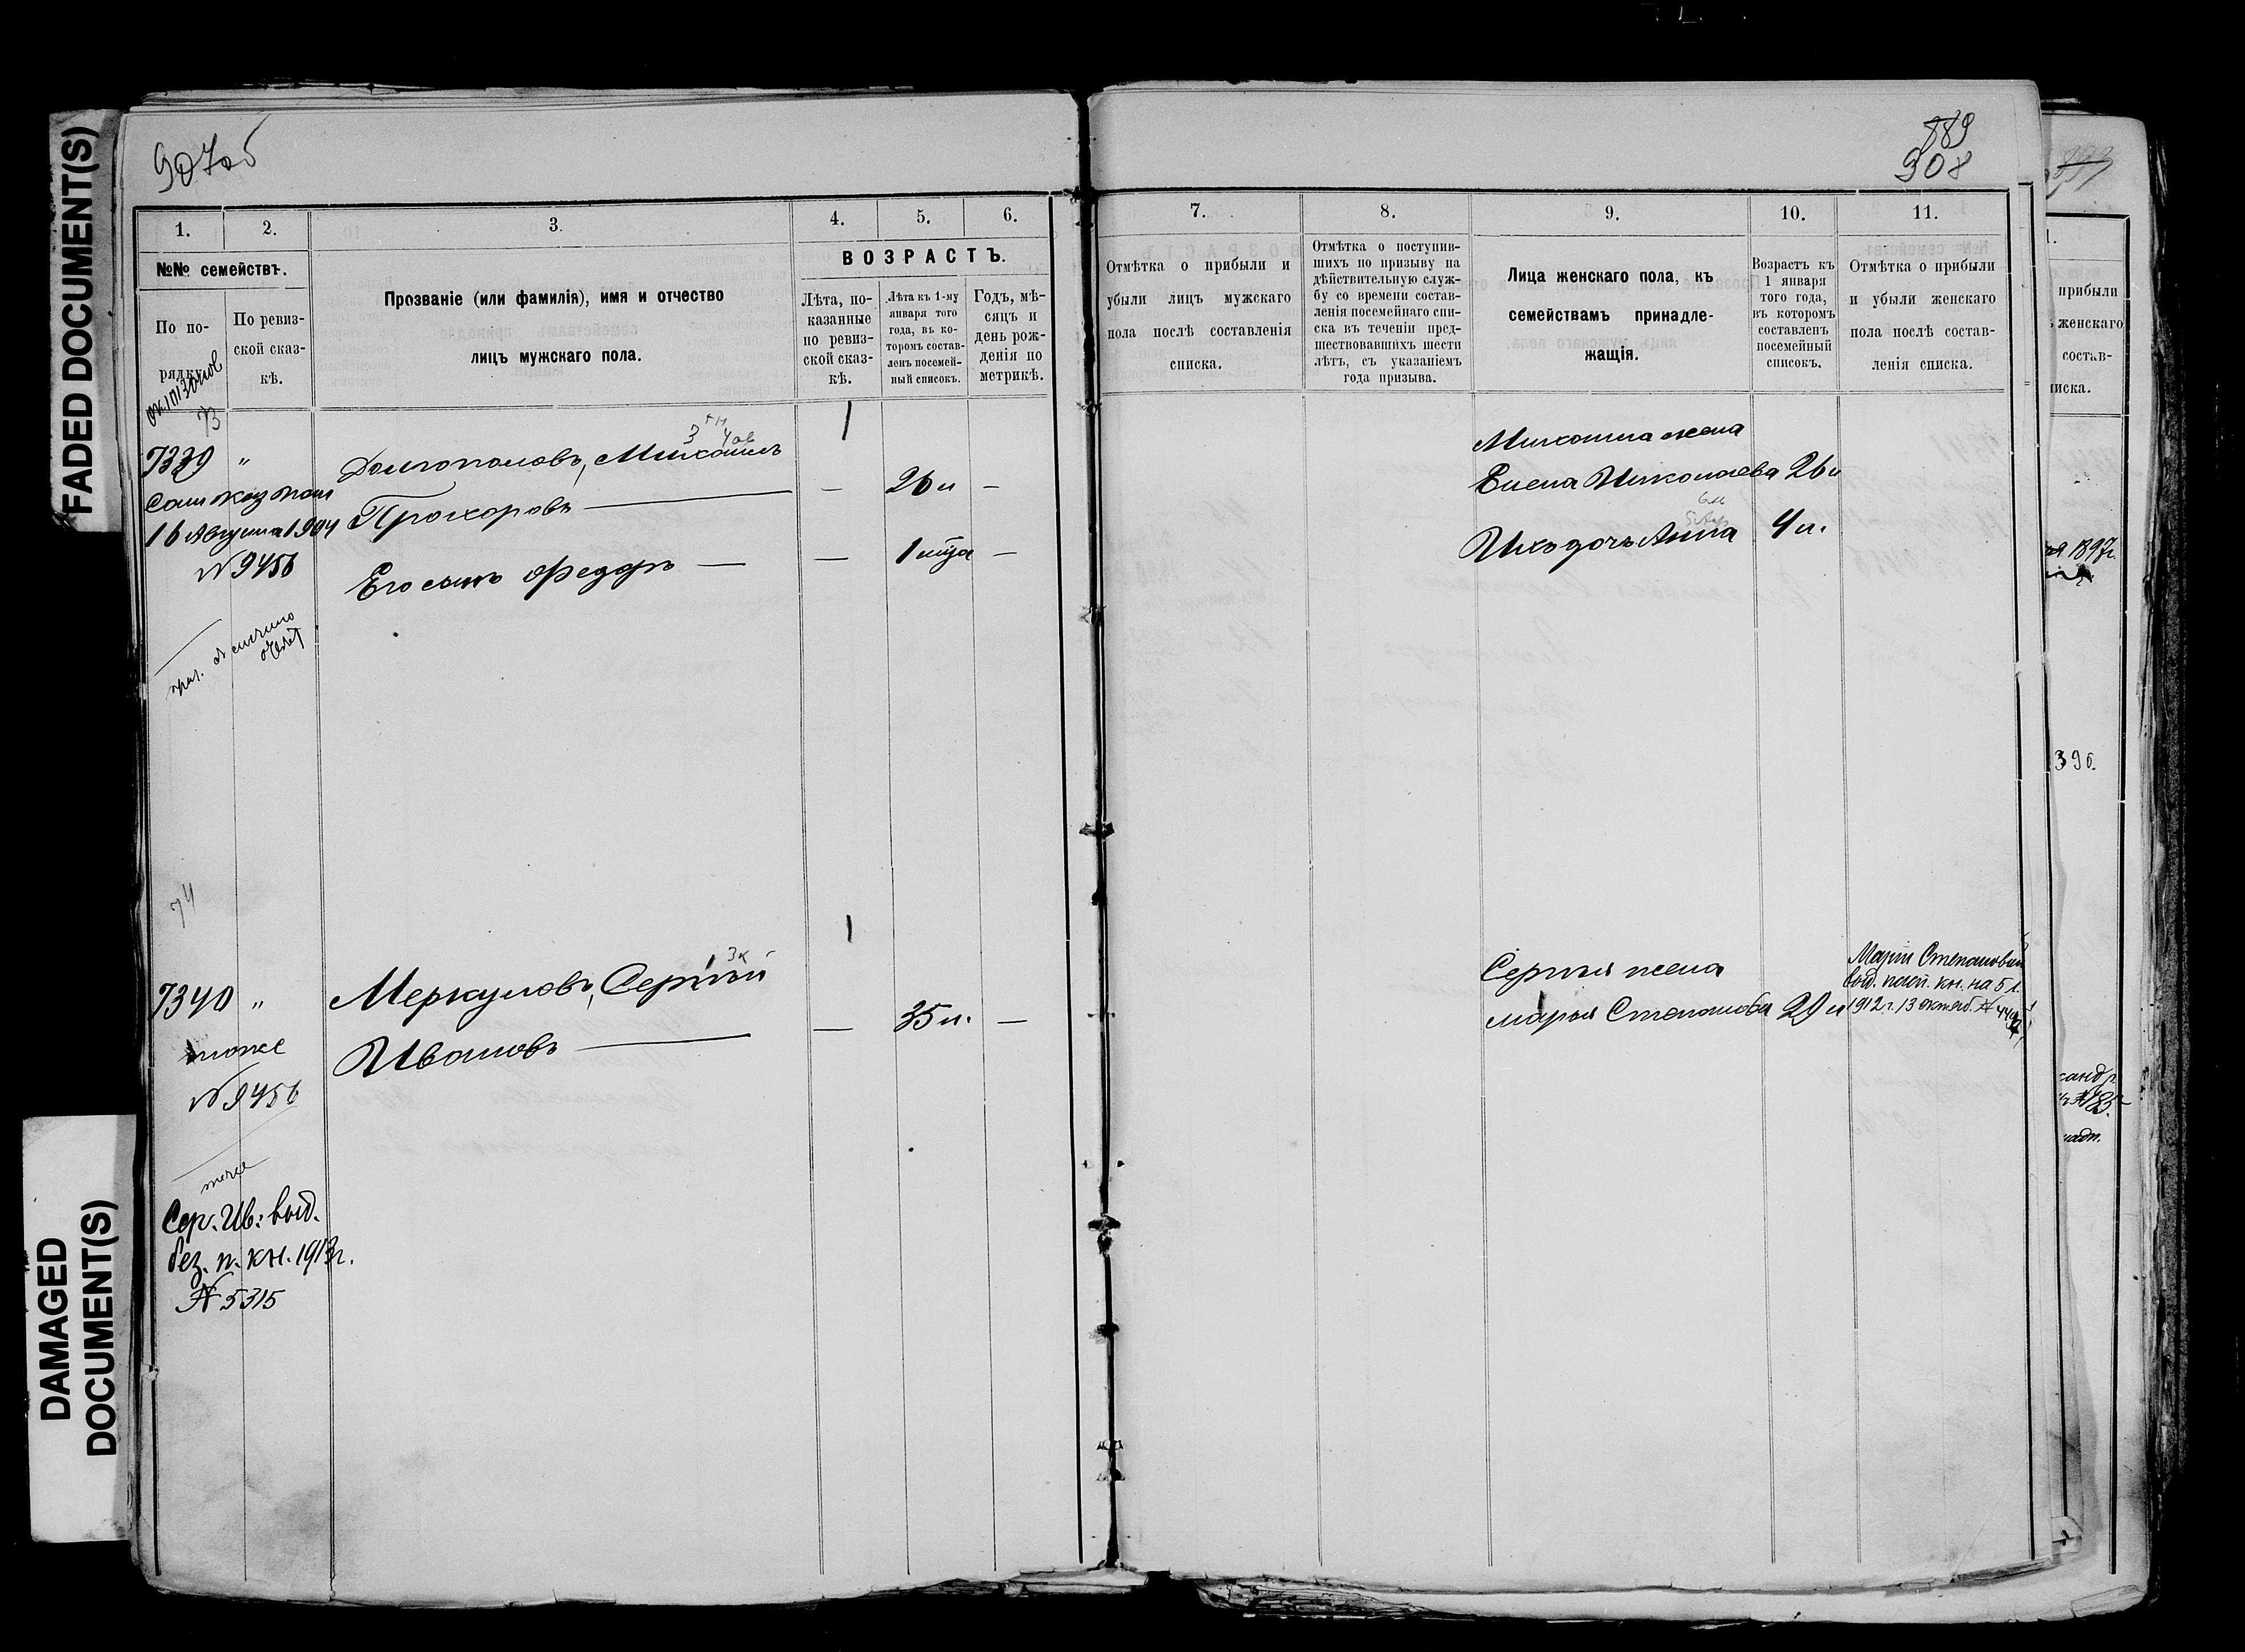 FADED DOCUMENT(S)
DAMAGED
DOCUMENT(S)
907об
1.
2.
3.
4.
5.
6.
№№ семействъ.
По по-
рядку
По ревиз-
ской сказ-
кѣ.
Прозваніе (или фамилія), имя и отчество
лицъ мужскаго пола.
ВОЗРАСТЪ.
Лѣта, по-
казанные
по ревиз-
ской сказ-
кѣ.
Лѣта къ 1-му
января того
года, въ ко-
торомъ состав-
ленъ посемей-
ный списокъ.
Годъ, мѣ-
сяцъ и
день рож-
денія по
метрикѣ.
73
7339 "
16 Августа 1904
№ 9456
Долгополовъ, Михаилъ
Прохоровъ — — 26 л —
Его сынъ Федоръ — — 1 мѣца —
74
7340 "
тоже
№ 9456
Меркуловъ, Сергѣй
Ивановъ — — 35 л. —
тоже
Сер. Ив: выд.
без. п. кн. 1913г.
№ 5315
889
908
7.
8.
9.
10.
11.
Отмѣтка о прибыли и
убыли лицъ мужскаго
пола послѣ составленія
списка.
Отмѣтка о поступив-
шихъ по призыву на
дѣйствительную служ-
бу со времени состав-
ленія посемейнаго спи-
ска въ теченіи пред-
шествовавшихъ шести
лѣтъ, съ указаніемъ
года призыва.
Лица женскаго пола, къ
семействамъ принадле-
жащія.
Возрастъ къ
1 января
того года,
въ которомъ
составленъ
посемейный
списокъ.
Отмѣтка о прибыли
и убыли женскаго
пола послѣ состав-
ленія списка.
Михаила жена
Елена Николаева 26 л
Ихъ дочь Анна 4 л.
Сергѣя жена
Марья Степанова 29 л
Маріи Степановой
выд. пасп. кн. на 5 л.
1912 г. 13 октяб. №
1.
прибыли
женскаго
состав-
иска.
1897г.
396.